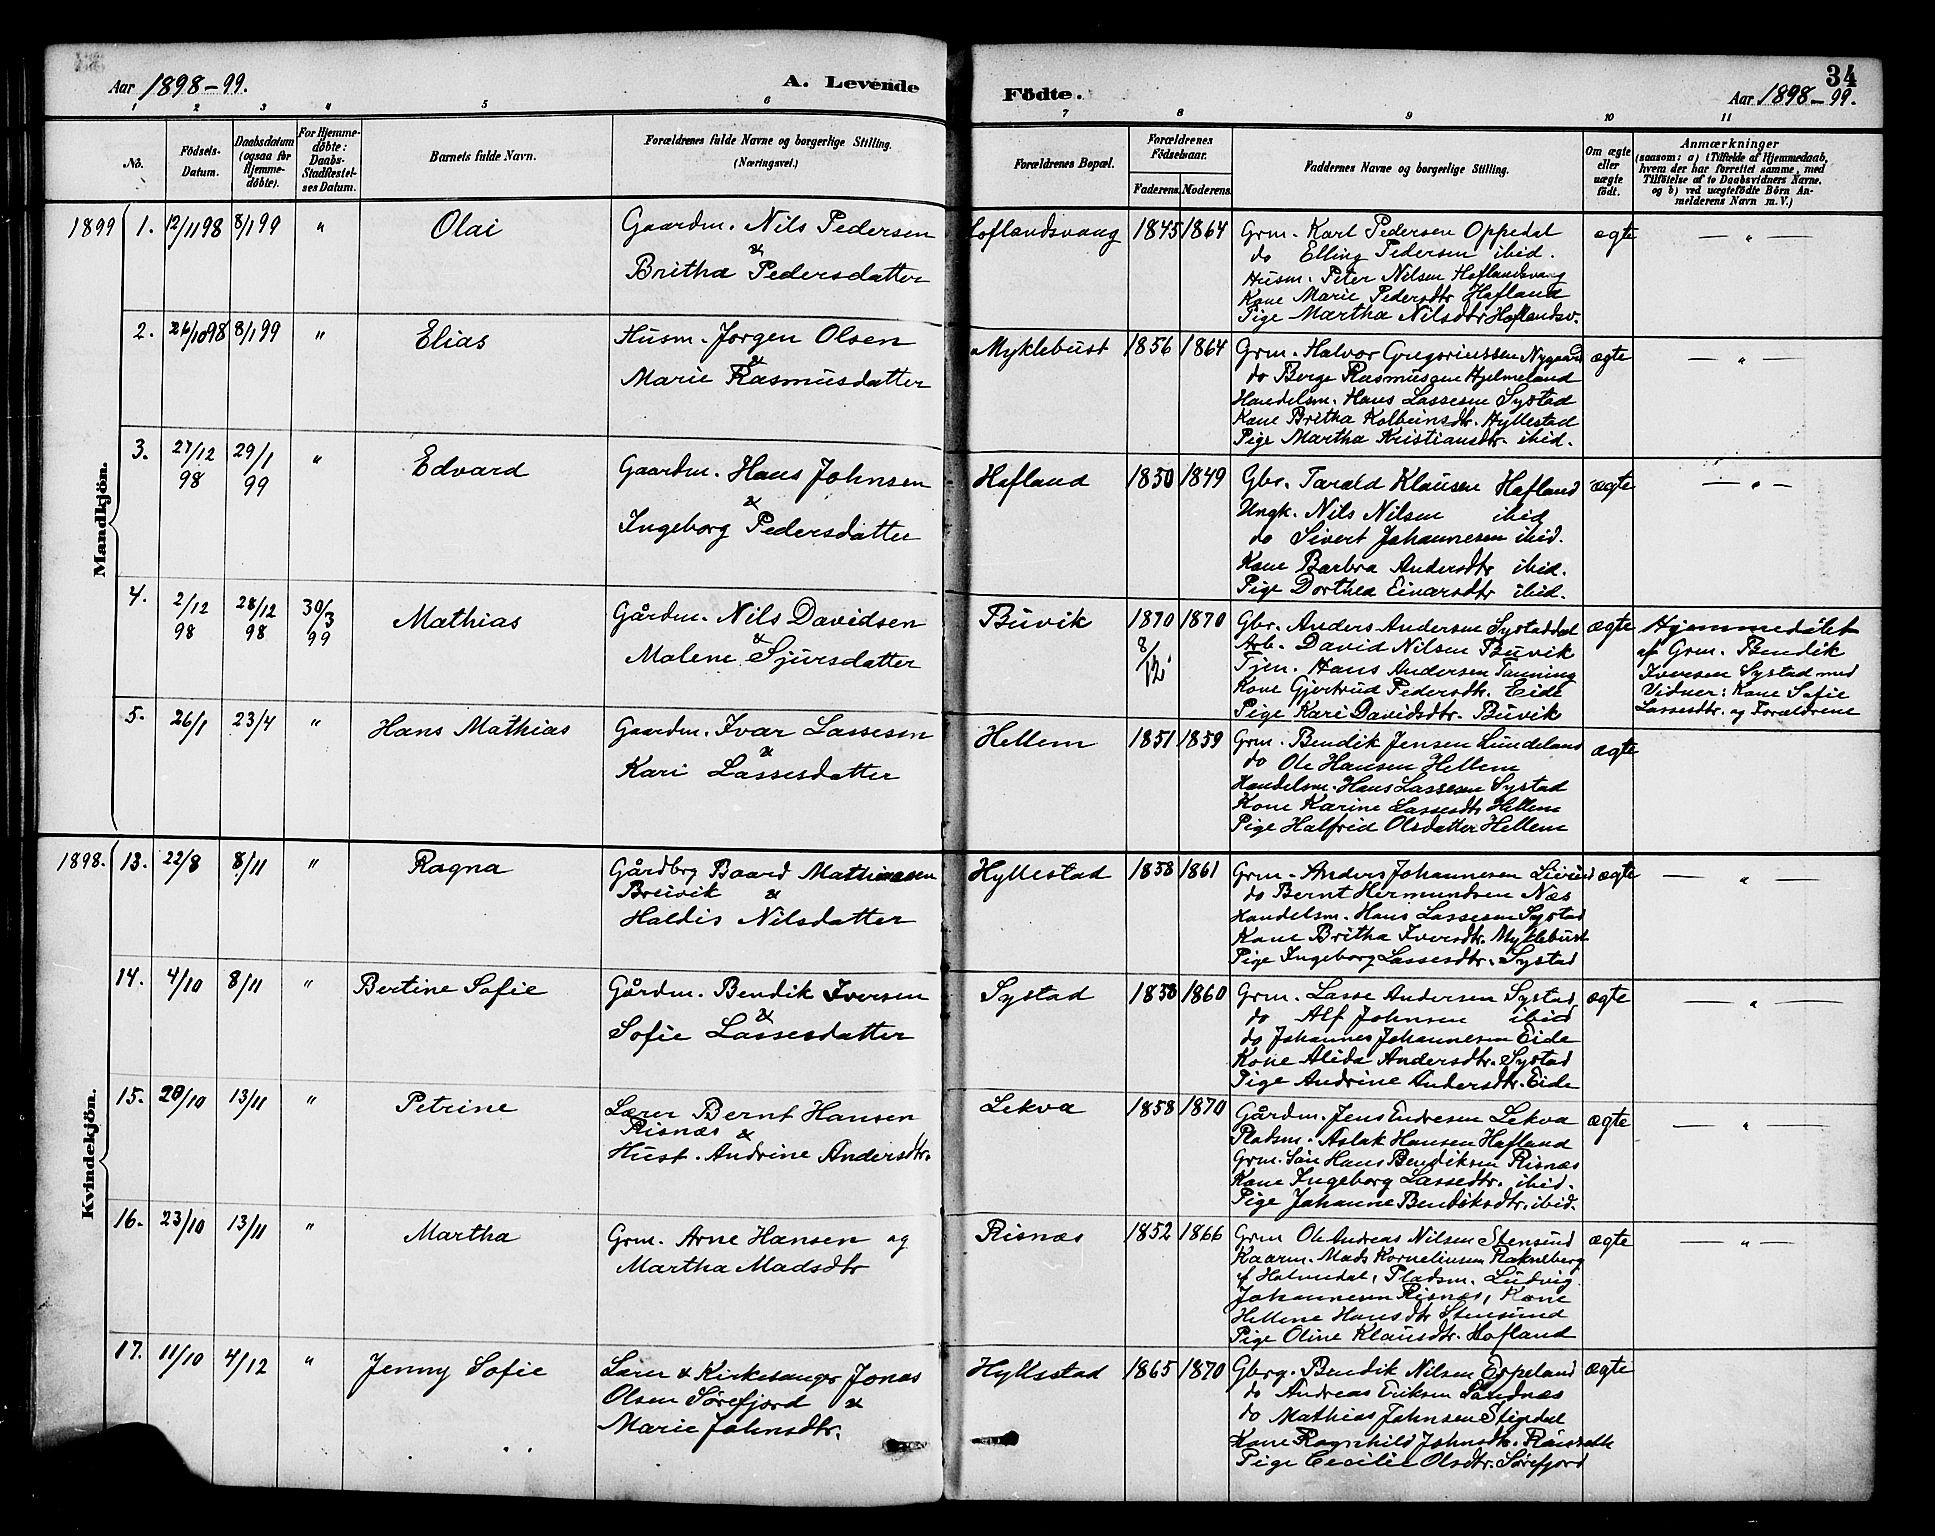 34
Aar 1898-99. A. Levende Födte. Aar 1898-99.
1 2 3 4 5 6 7 8 9 10 11
No. Födsels-Datum. Daabsdatum (ogsaa for Hjemme-döbte). For Hjemme-döbte: Daabs-Stadfæstel-ses Datum. Barnets fulde Navn. Forældrenes fulde Navne og borgerlige Stilling. (Næringsvei.) Forældrenes Bopæl. Forældrenes Födselsaar. Faderens. Moderens. Faddernes Navne og borgerlige Stilling. Om ægte eller uægte födt. Anmærkninger (saasom: a) i Tilfælde af Hjemmedaab, hvem der har forrettet samme, med Tilföielse af to Daabsvidners Navne, og b) ved uægtefödte Börn An-melderens Navn m. V.)
Mandkjön.
1899 1. 12/11 98 8/1 99 " Olai Gaardm. Nils Pedersen
&
Britha Pedersdatter
Hoflandsvaag 1845 1864 Grm. Karl Pedersen Oppedal ægte — " —
do Elling Pedersen ibid.
Husm. Peter Nilsen Haflandsvaag
Kone Marie Pedersdtr Hafland
Pige Martha Nilsdtr Haflandsv.
2. 26/10 98 8/1 99 " Elias Husm. Jørgen Olsen
&
Marie Rasmusdatter
Myklebust 1856 1864 Grm. Halvor Gregoriussen Nygaard ægte — " —
do Berge Rasmussen Hjelmeland
Handelsm. Hans Lassesen Systad
Kone Britha Kolbeinsdtr. Hyllestad
Pige Martha Kristiansdtr. ibid.
3. 27/12 98 29/1 99 " Edvard Gaardm. Hans Johnsen
&
Ingeborg Pedersdatter
Hafland 1850 1849 Gbr. Tarald Klausen Hafland ægte — " —
Ungk. Nils Nilsen ibid
do Sivert Johannesen ibid.
Kone Barbra Andersdtr ibid.
Pige Dorthea Einarsdtr ibid.
4. 2/12 98 28/12 98 30/3 99 Mathias Gårdm. Nils Davidsen
&
Malene Sjursdatter
Buvik 1870 8/12. 1870 Gbr. Anders Andersen Systaddal ægte Hjemmedøbt
Arb. David Nilsen Buvik af Grm. Bendik
Tjen. Hans Andersen Tanning Iversen Systad med
Kone Gjertrud Pedersdtr. Eide Vidner: Kone Sofie
Pige Kari Davidsdtr. Buvik Lassesdtr. og Forældrene
5. 26/1 23/4 " Hans Mathias Gaardm. Ivar Lassesen
&
Kari Lassesdatter
Hellem 1851 1859 Grm. Bendik Jensen Lundeland ægte
do Ole Hansen Hellem
Handelsm. Hans Lassesen Systad
Kone Karine Lassesdtr Hellem
Pige Halfrid Olsdatter Hellem
Kvindekjön.
1898. 13. 22/8 8/11 " Ragna Gårdbrg Baard Mathiassen
Breivik &
Haldis Nilsdatter
Hyllestad 1858 1861 Grm. Anders Johannesen ægte — " —
do Bernt Hermundsen Næs
Handelsm. Hans Lassesen Systad
Kone Britha Iversdtr. Myklebust
Pige Ingeborg Lassesdtr. Systad
14. 4/10 8/11 " Bertine Sofie Gårdm. Bendik Iversen
&
Sofie Lassesdatter
Systad 1858 1860 Grm. Lasse Andersen Systad ægte — " —
do Alf Johnsen ibid
do Johannes Johannesen Eide
Kone Alida Andersdtr. Systad
Pige Andrine Andersdtr. Eide
15. 20/10 13/11 " Petrine Lærer Bernt Hansen
Risnæs &
Hust. Andrine Andersdtr.
Lekva 1858 1870 Gårdm. Jens Endresen Lekva ægte — " —
Pladsm. Aslak Hansen Hafland
Grm. Søn Hans Bendiksen Risnæs
Kone Ingeborg Lassedtr. ibid.
Pige Johanne Bendiksdtr. ibid.
16. 23/10 13/11 " Martha Grm. Arne Hansen og
Martha Madsdtr
Risnæs 1852 1866 Grm Ole Andreas Nilsen Stensund ægte — " —
Kaarm. Mads Korneliussen Rakneberg
af Holmedal, Pladsm. Ludvig
Johannesen Risnæs, Kone
Hellene Hansdtr Stensund
Pige Oline Klausdtr. Hafland
17. 11/10 4/12 " Jenny Sofie Lærer & Kirkesanger Jonas
Olsen Sørefjord &
Marie Johnsdtr.
Hyllestad 1865 1870 Gbrg. Bendik Nilsen Espeland ægte
do Andreas Eriksen Sandnæs
do Mathias Johnsen
Kone Ragnhild Johnsdtr.
Pige Cecilie Olsdtr. Sørefjord